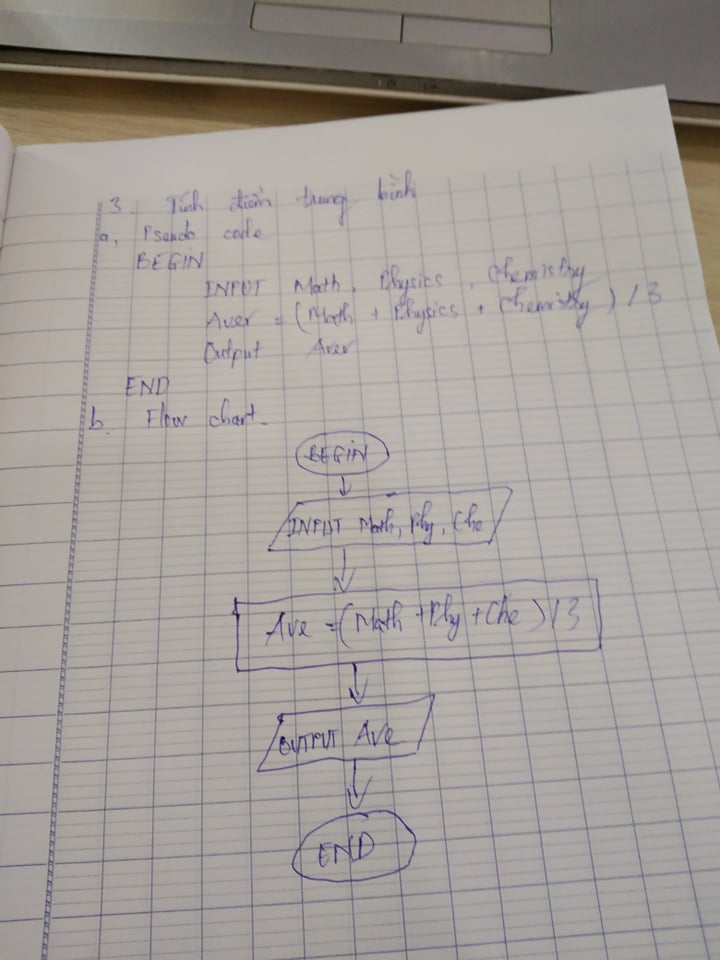 3. Tính điểm trung bình
a, Psendo code
BEGIN
INPUT Math, Physics, Chemistry
Aver = (Math + Physics + Chemistry) / 3
Output Aver
END
b. Flow chart.
BEGIN
INPUT Math, Phy, Che
Ave = (Math + Phy + Che) / 3
OUTPUT Ave
END